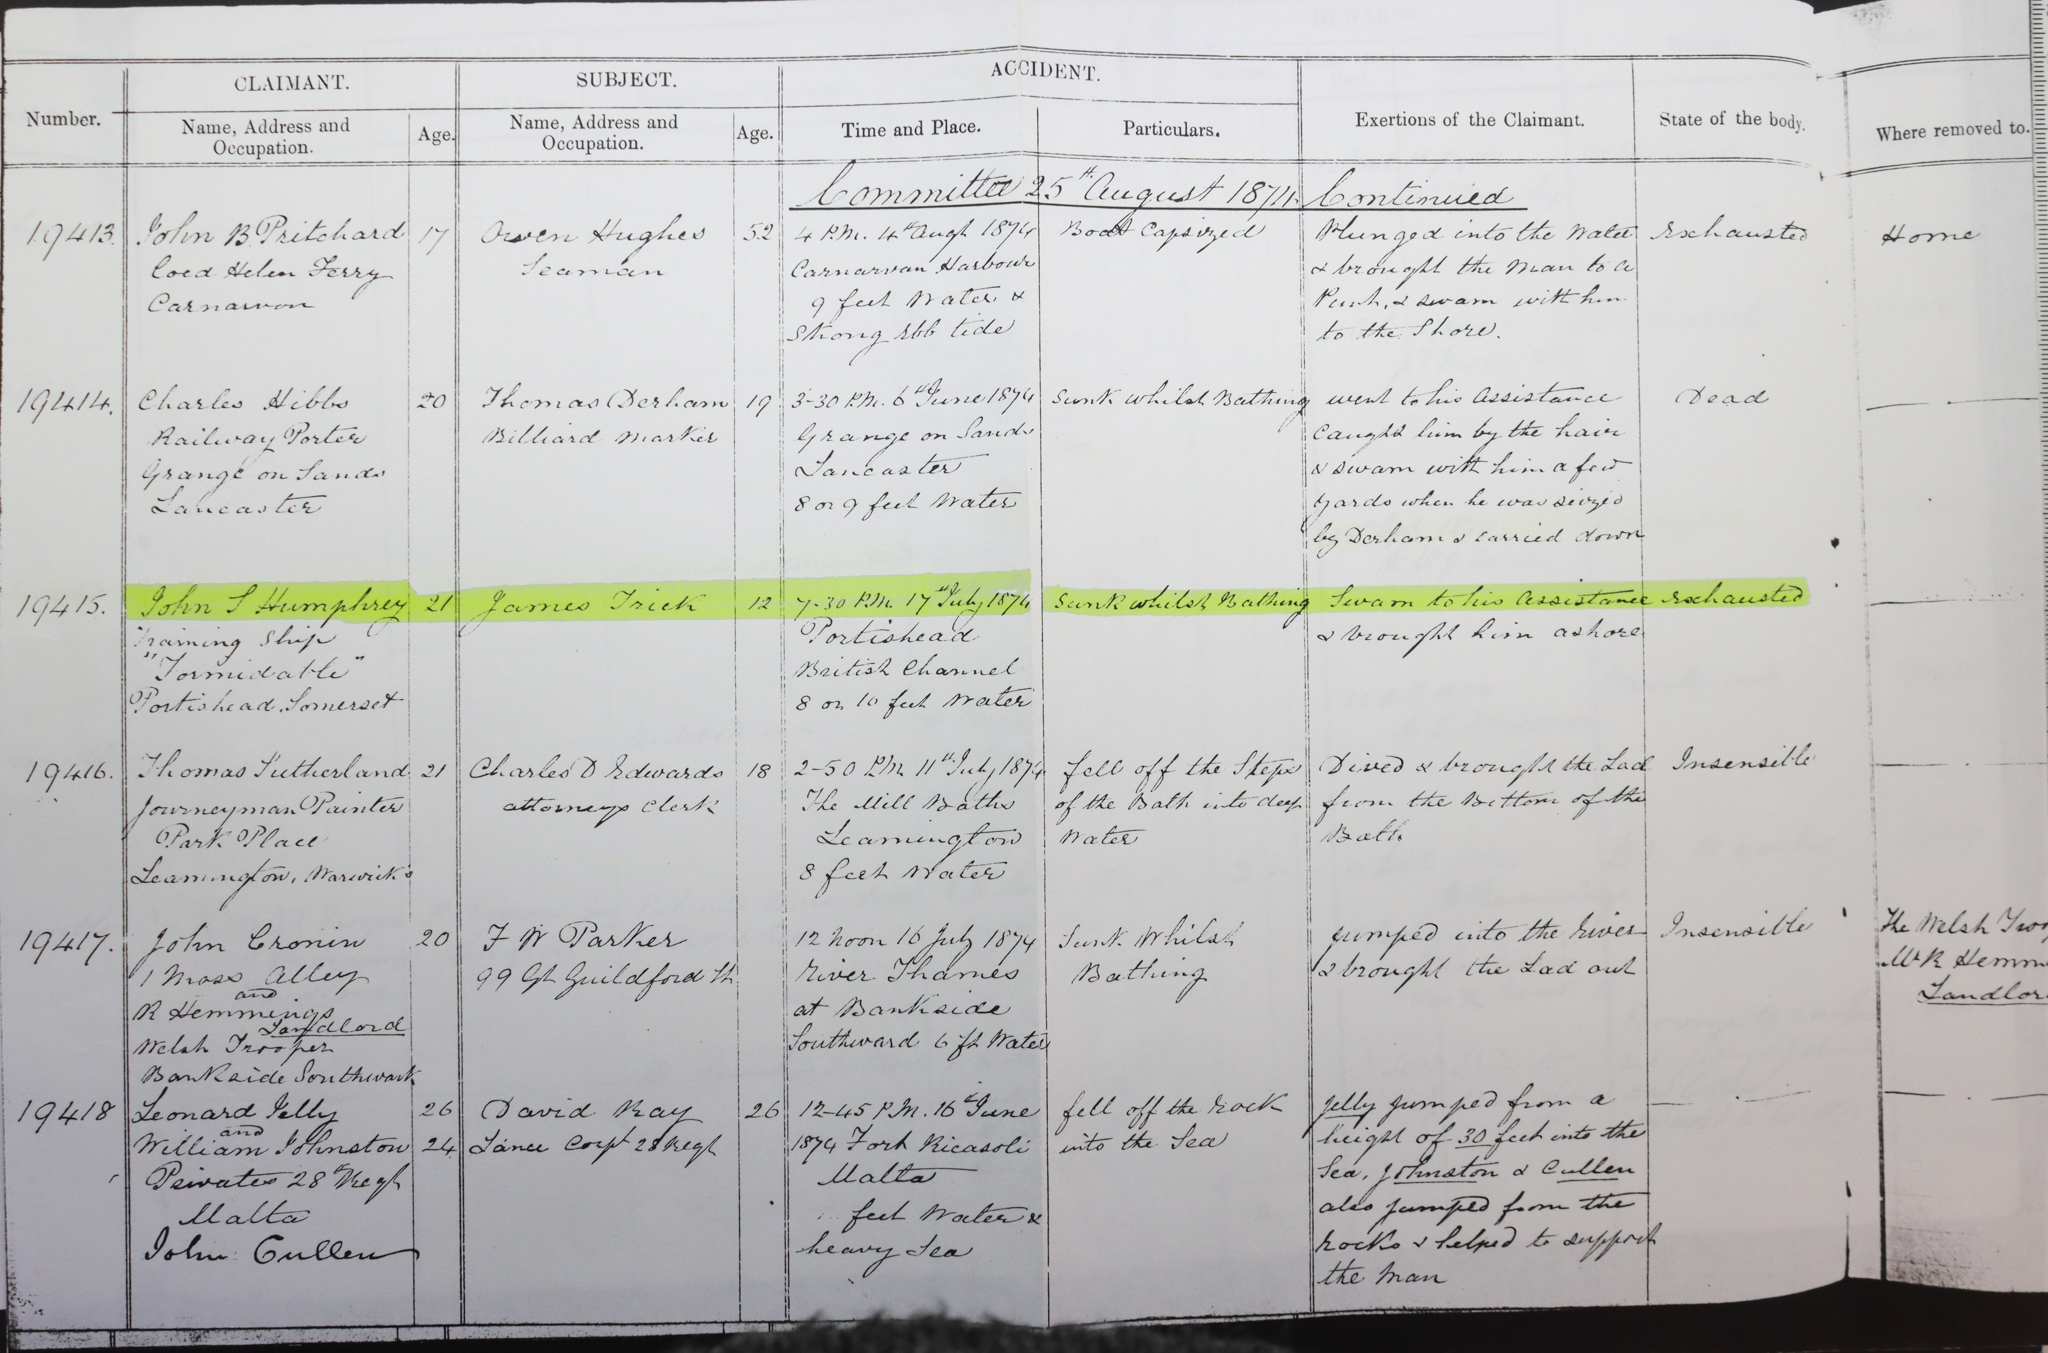 CLAIMANT. SUBJECT. ACCIDENT.
Number. Name, Address and Occupation. Age. Name, Address and Occupation. Age. Time and Place. Particulars. Exertions of the Claimant. State of the body. Where removed to.
Committee 25th August 1874 Continued
19413. John B Pritchard 17 Owen Hughes 52 4 P.M. 4th Augt 1874 Boat Capsized Plunged into the Water Exhausted Home
Coed Helen Ferry Seaman Carnarvon Harbour & brought the Man to a
Carnarvon 9 feet Water & Punt, & swam with him
Strong Ebb tide to the Shore.
19414. Charles Hibbs 20 Thomas Derham 19 3-30 P.M. 6th June 1874 Sunk whilst Bathing went to his Assistance Dead
Railway Porter Billiard Marker Grange on Sands Caught him by the hair
Grange on Sands Lancaster & swam with him a few
Lancaster 8 or 9 feet Water yards when he was seized
by Derham & carried down
19415. John S Humphrey 21 James Trick 12 7-30 P.M. 17th July 1874 Sunk whilst Bathing Swam to his Assistance Exhausted
Training Ship Portishead & brought him ashore
"Formidable" British Channel
Portishead, Somerset 8 or 10 feet Water
19416. Thomas Sutherland 21 Charles D Edwards 18 2-50 P.M. 11th July 1874 fell off the Steps Dived & brought the Lad Insensible
Journeyman Painter attorneys Clerk The Mill Baths of the Bath into deep from the Bottom of the
Park Place Leamington Water Bath
Leamington, Warwick's 8 feet Water
19417. John Cronin 20 F W Parker 12 Noon 16 July 1874 Sunk Whilst jumped into the River Insensible The Welsh
1 Moss Alley 99 Gt Guildford St River Thames Bathing & brought the Lad out Mr R
and
R Hemmings at Bankside
Landlord
Welsh Trooper Southward 6 ft Water
Bankside Southwark
19418 Leonard Jelly 26 David Kay 26 12-45 P.M. 16th June fell off the Rock Jelly jumped from a
and
William Johnston 24 Lance Corpl 28 Regt 1874 Fort Ricasoli into the Sea height of 30 feet into the
Privates 28th Regt Malta Sea, Johnston & Cullen
Malta feet Water & also jumped from the
John Cullen heavy Sea Rocks & helped to support
the Man